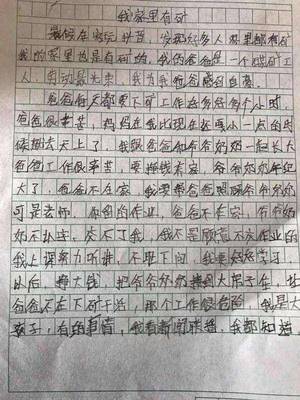 我家里有矿
最候在的玩抖音，发现好多人家里都有矿
我的家里也是有矿的，我的爸爸是一个煤矿工
人，劳动最光荣，我为我爸爸感到自豪。
爸爸每天都要下矿工作好多好多个小时，
爸爸很辛苦，妈妈在我比现在还要小一点的时
候她去天上了，我跟爸爸和爷爷奶奶一起长大
爸爸工作很辛苦，要挣钱养家，爷爷奶奶年纪
大了，爸爸不在家，我要帮爸爸照顾爷爷奶奶
可是老师，你留的作业，爸爸不在家，爷爷奶
奶不认字，交不了我，我不是故意不交作业的
我上课努力听讲，不耻下问，我要好好学习
以后，挣大钱，把爷爷奶奶接到大房子住，让
爸爸不在下矿干活，那个工作很危险，我是大
孩子，有的事情，我看新闻联播，我都知道，